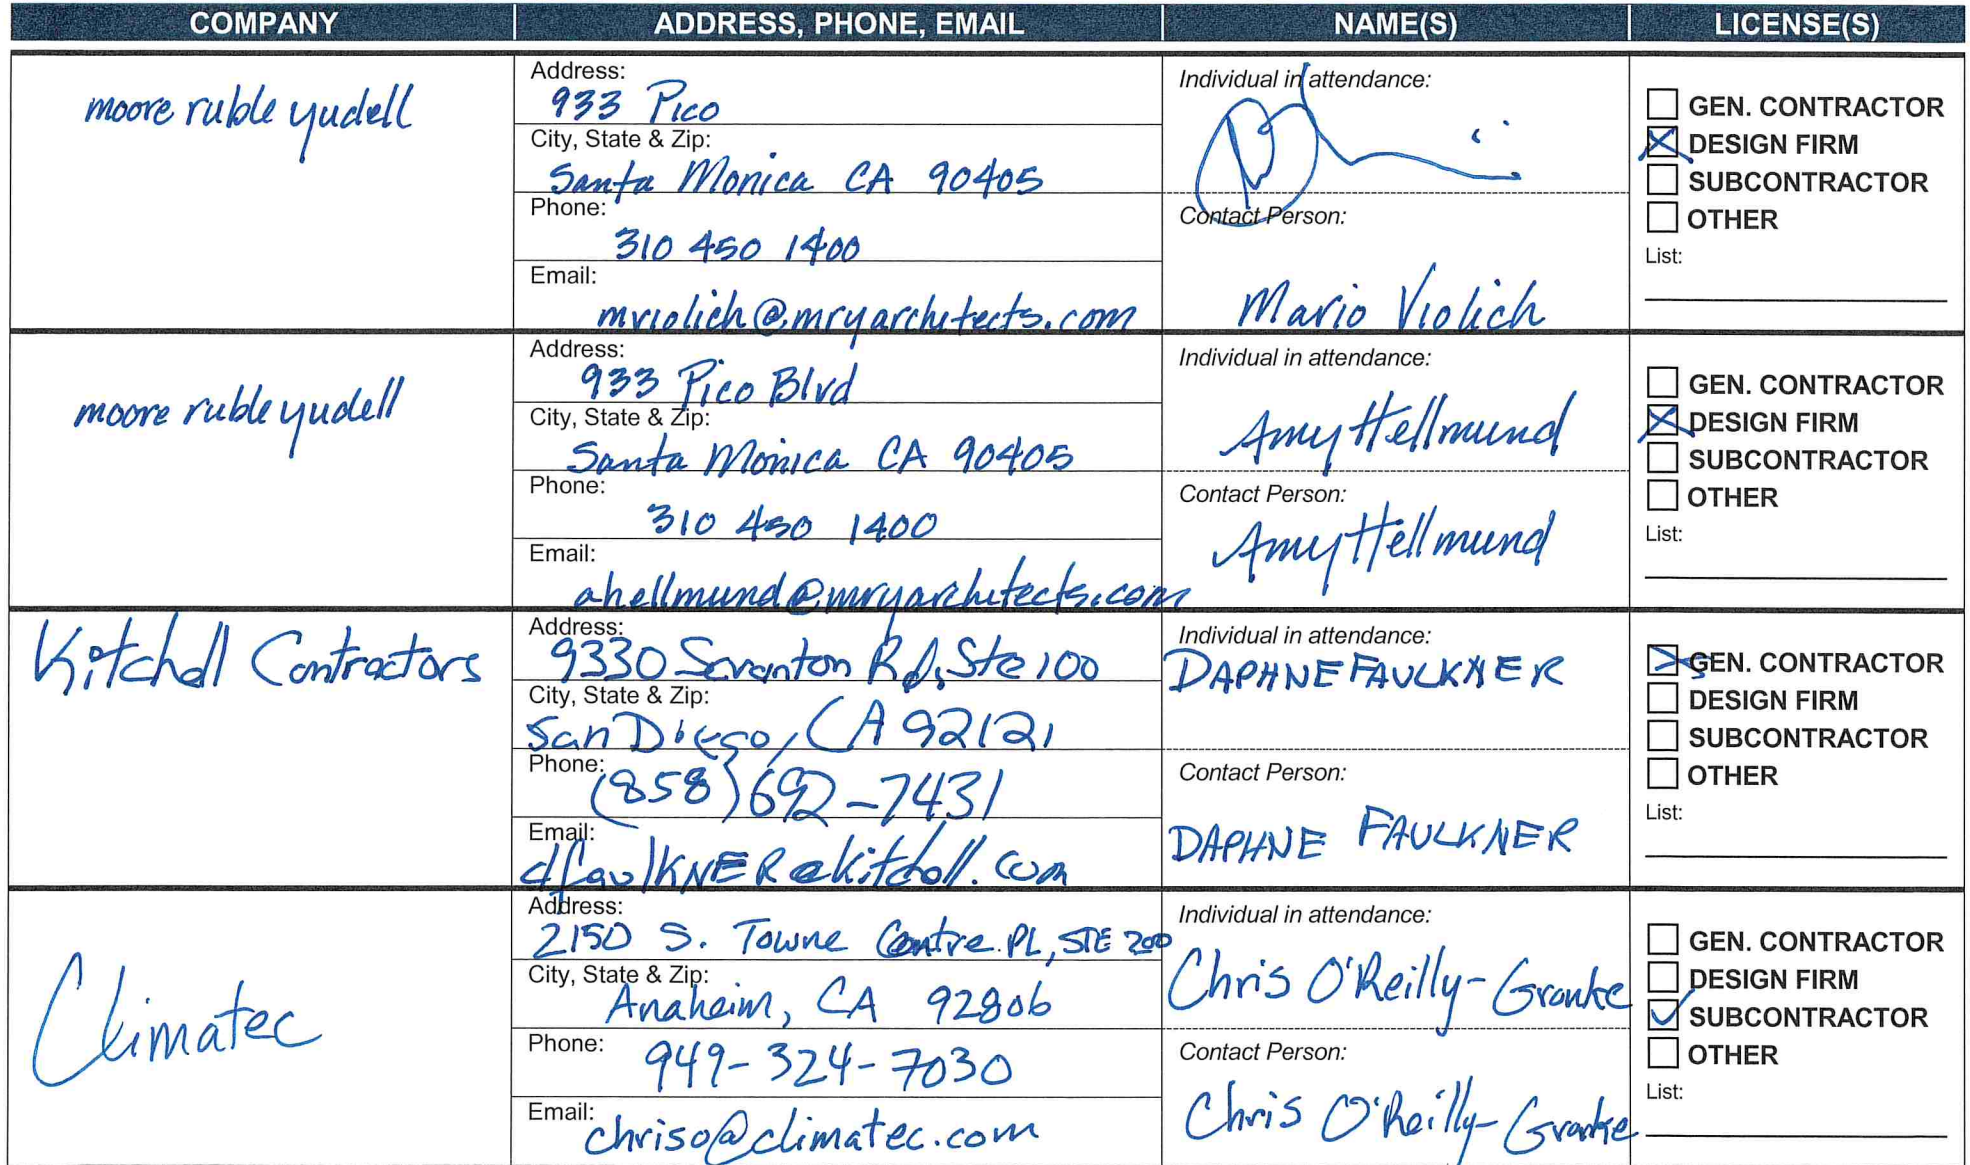 COMPANY ADDRESS, PHONE, EMAIL NAME(S) LICENSE(S)
moore ruble yudell
Address:
933 Pico
City, State & Zip:
Santa Monica CA 90405
Phone:
310 450 1400
Email:
mviolich@mryarchitects.com
Individual in attendance:
Contact Person:
Mario Violich
GEN. CONTRACTOR
DESIGN FIRM
SUBCONTRACTOR
OTHER
List:
moore ruble yudell
Address:
933 Pico Blvd
City, State & Zip:
Santa Monica CA 90405
Phone:
310 450 1400
Email:
ahellmund@mryarchitects.com
Individual in attendance:
Amy Hellmund
Contact Person:
Amy Hellmund
GEN. CONTRACTOR
DESIGN FIRM
SUBCONTRACTOR
OTHER
List:
Kitchell Contractors
Address:
9330 Scranton Rd, Ste 100
City, State & Zip:
San Diego, CA 92121
Phone:
(858) 692-7431
Email:
dfaulKNER@kitchell.com
Individual in attendance:
DAPHNE FAULKNER
Contact Person:
DAPHNE FAULKNER
GEN. CONTRACTOR
DESIGN FIRM
SUBCONTRACTOR
OTHER
List:
Climatec
Address:
2150 S. Towne Centre PL, STE 200
City, State & Zip:
Anaheim, CA 92806
Phone:
949-324-7030
Email:
chriso@climatec.com
Individual in attendance:
Chris O'Reilly-Granke
Contact Person:
Chris O'Reilly-Granke
GEN. CONTRACTOR
DESIGN FIRM
SUBCONTRACTOR
OTHER
List: